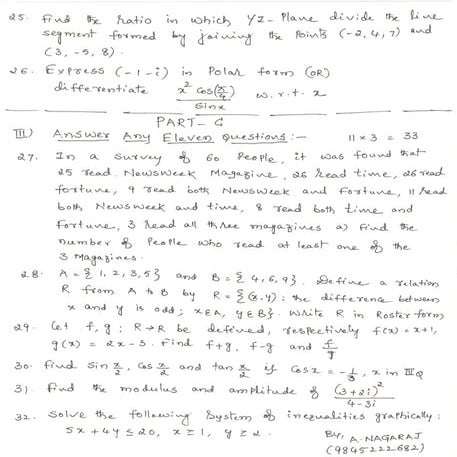 25. Find the ratio in which YZ-Plane divide the line
segment formed by joining the points (-2, 4, 7) and
(3, -5, 8).
26. Express (-1-i) in Polar form (OR)
differentiate x² cos(π/4) / sinx w.r.t. x
PART-C
III) Answer Any Eleven Questions:- 11×3 = 33
27. In a survey of 60 People, it was found that
25 read Newsweek Magazine, 26 read time, 26 read
fortune, 9 read both Newsweek and Fortune, 11 read
both Newsweek and time, 8 read both time and
Fortune, 3 read all three magazines a) Find the
number of People who read at least one of the
3 Magazines.
28. A = {1, 2, 3, 5} and B = {4, 6, 9}. Define a relation
R from A to B by R = {(x, y): the difference between
x and y is odd; x∈A, y∈B}. Write R in Roster form
29. Let f, g: R→R be defined, respectively f(x) = x+1,
g(x) = 2x-3. Find f+g, f-g and f/g
30. Find sin x/2, cos x/2 and tan x/2 if cosx = -1/3, x in IIIQ
31. Find the modulus and amplitude of (3+2i)² / 4-3i
32. Solve the following System of inequalities graphically:
5x+4y ≤ 20, x ≥ 1, y ≥ 2.
BY, A. NAGARAJ
(9845222682)